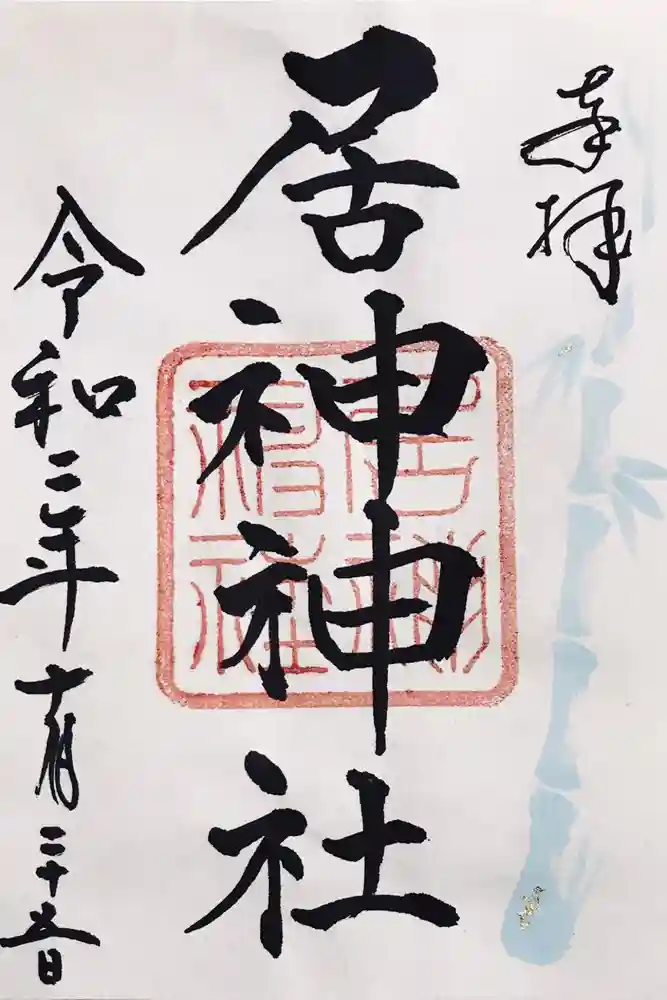 奉拝
居神神社
居神
神社
令和二年十月二十五日